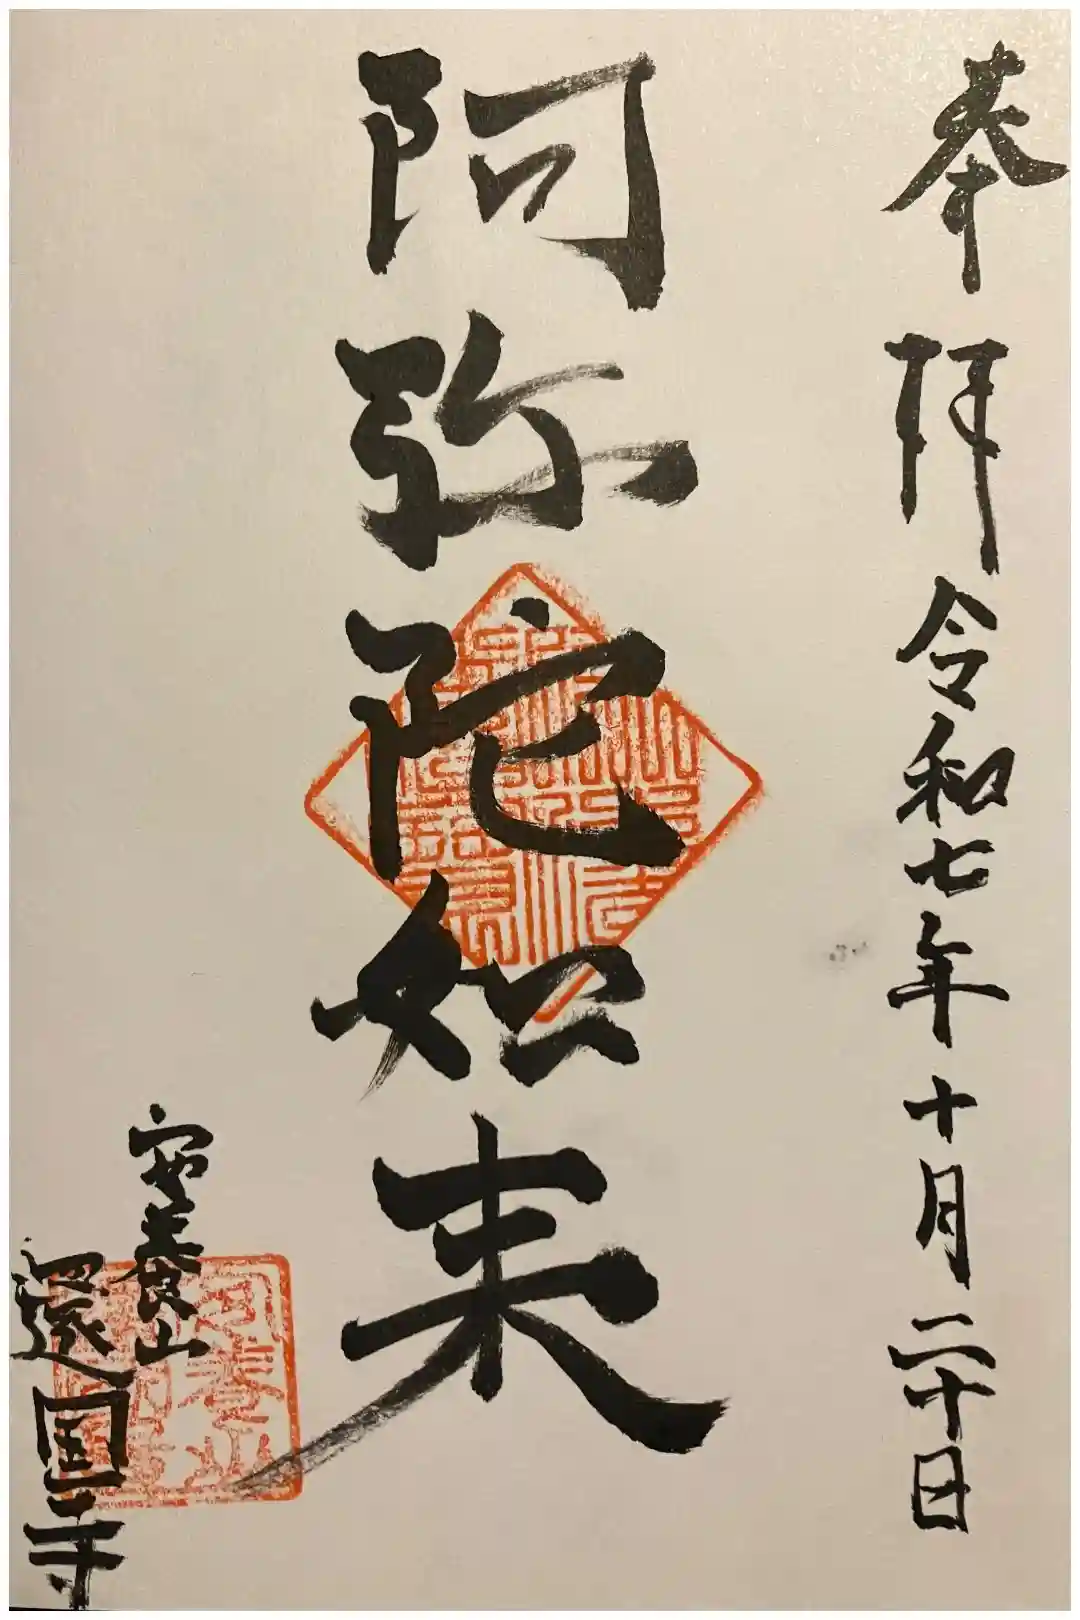 奉拝 令和七年十月二十日
阿弥陀如来
安養山
還国寺